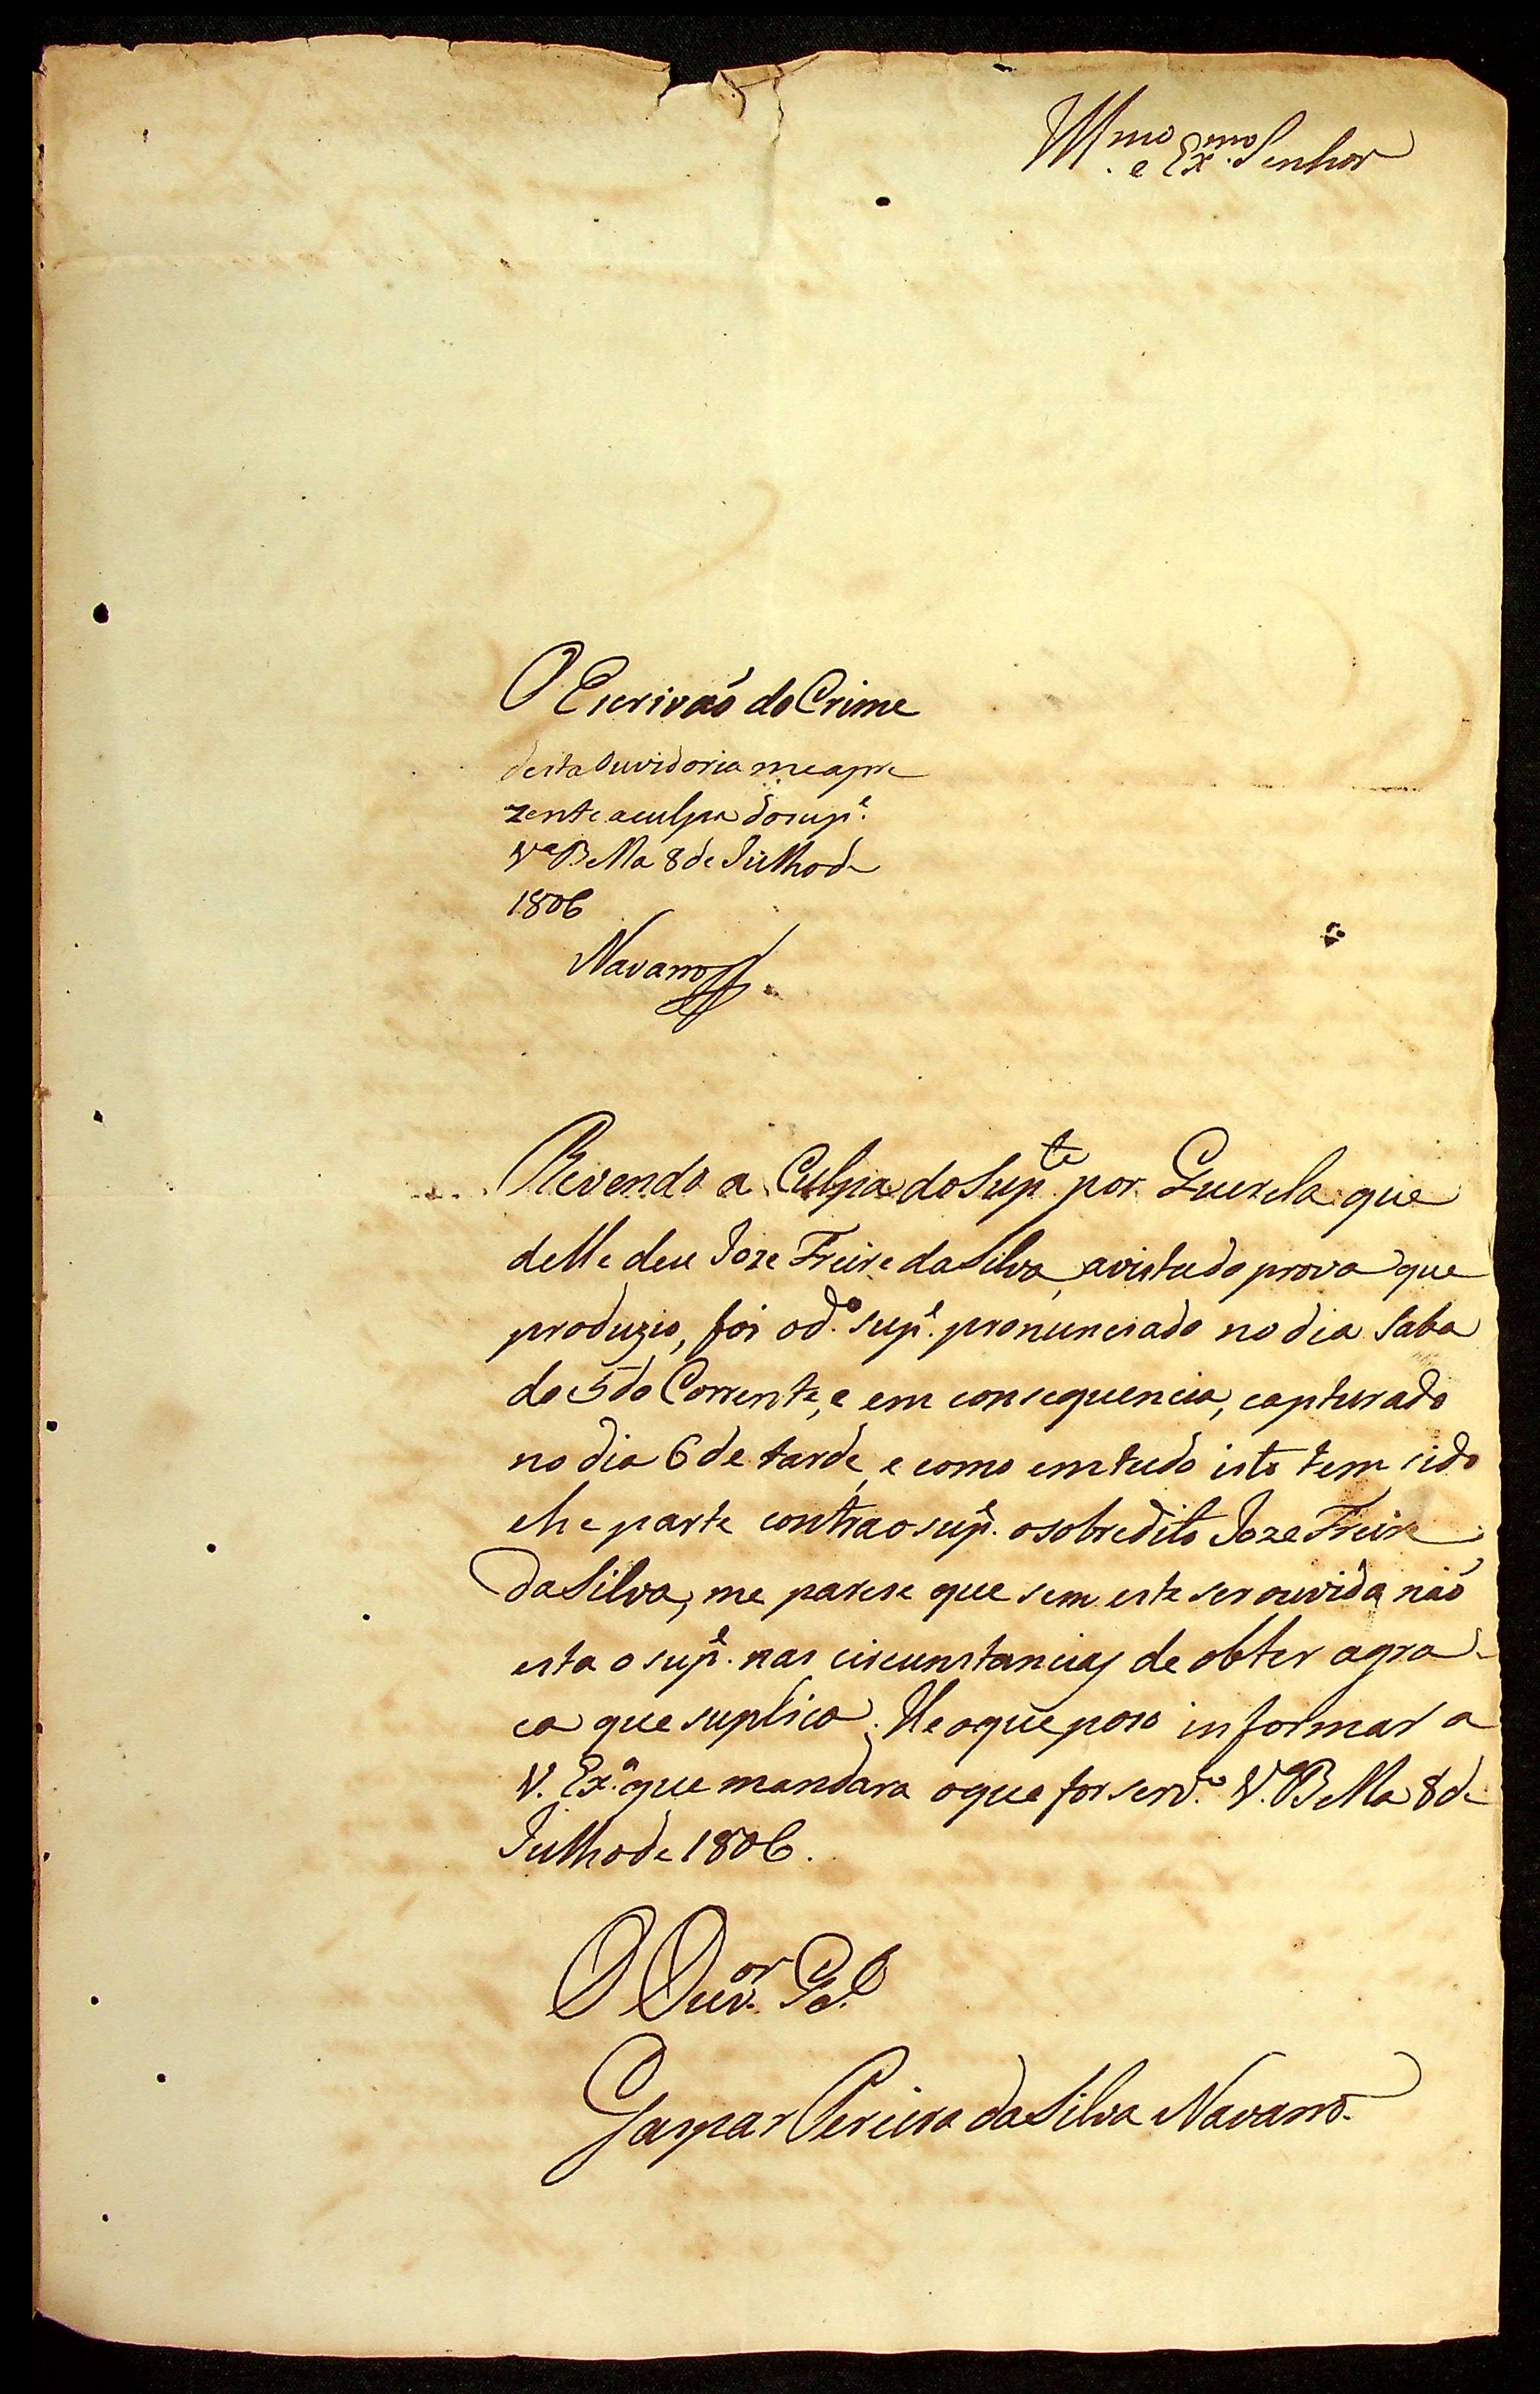 Illmo. e Exmo. Senhor
O Escrivaõ do Crime
desta Ouvidoria me apre
zente a culpa do supe.
Va Bella 8 de Julho de
1806
Navarro
Revendo a Culpa do Supte. por Querela que
delle deu Joze Freire da Silva, avista da prova que
produzio, foi o do. supe. pronunciado no dia Saba
do 5 do Corrente, e em consequencia, capturado
no dia 6 de tarde, e como em tudo isto tem sido
e he parte contra o supe. o sobredito Joze Freire
da Silva, me parese que sem este ser ouvida naõ
esta o supe. nas circunstancias de obter a gra-
ca que suplica. He o que poso informar a
V. Exa. que mandara o que for servo. Va. Bella 8 de
Julho de 1806.
O Ouvor. Gal.
Gaspar Pereira da Silva Navarro.